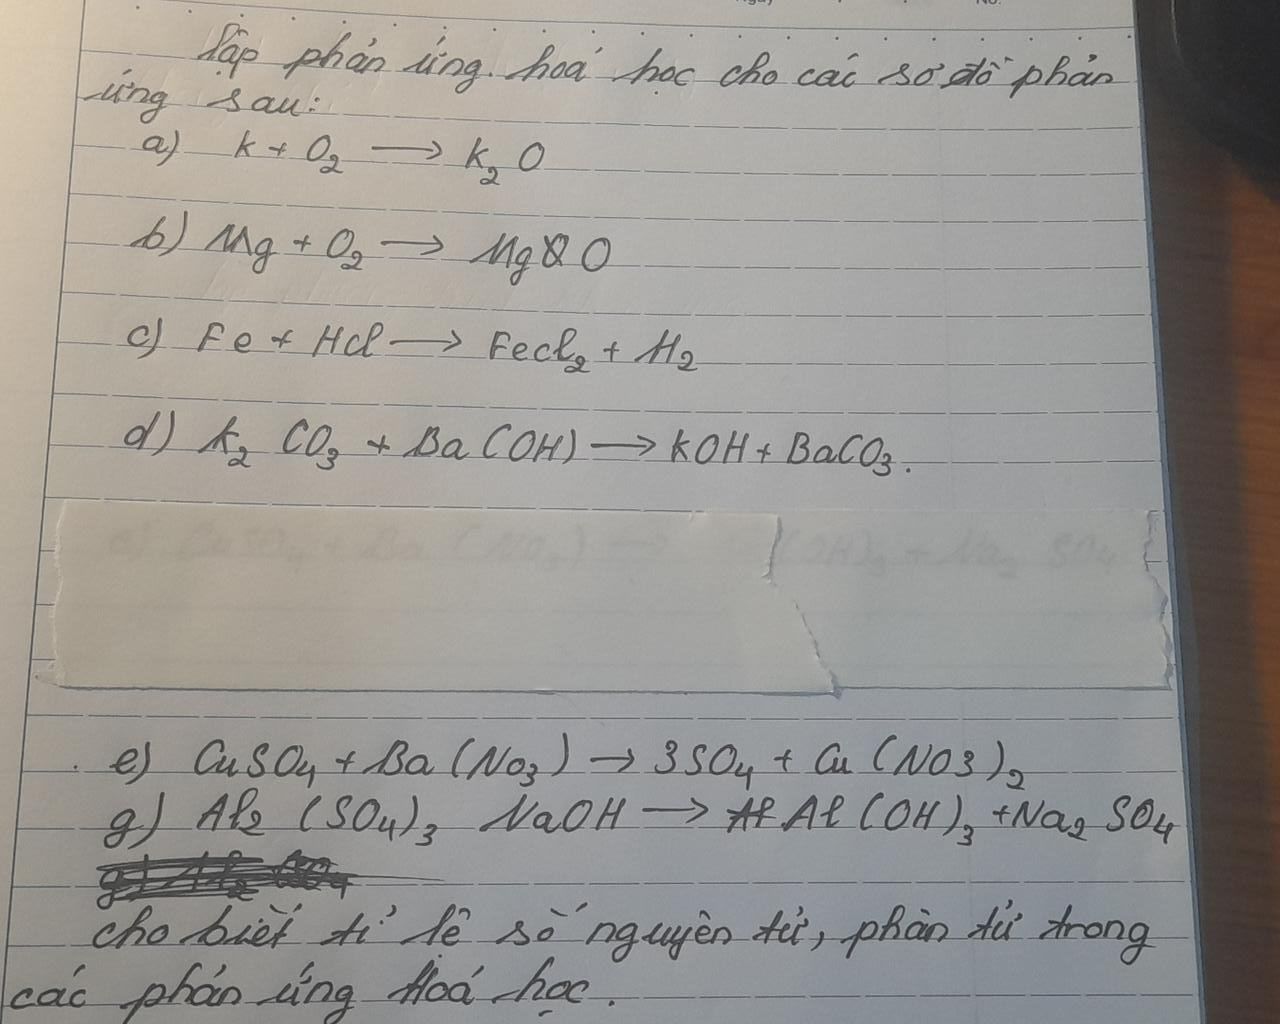 lập phản ứng. hoá học cho các sơ đồ phản
ứng sau:
a) k + O₂ → k₂O
b) Mg + O₂ → MgO
c) Fe + Hcl → Fecl₂ + H₂
d) k₂CO₃ + Ba(OH) → kOH + BaCO₃.
e) CuSO₄ + Ba(No₃) → 3SO₄ + Cu(NO3)₂
g) Al₂(SO₄)₃ NaOH → Al(OH)₃ + Na₂SO₄
cho biết tỉ lệ số nguyên tử, phân tử trong
các phản ứng Hoá học.